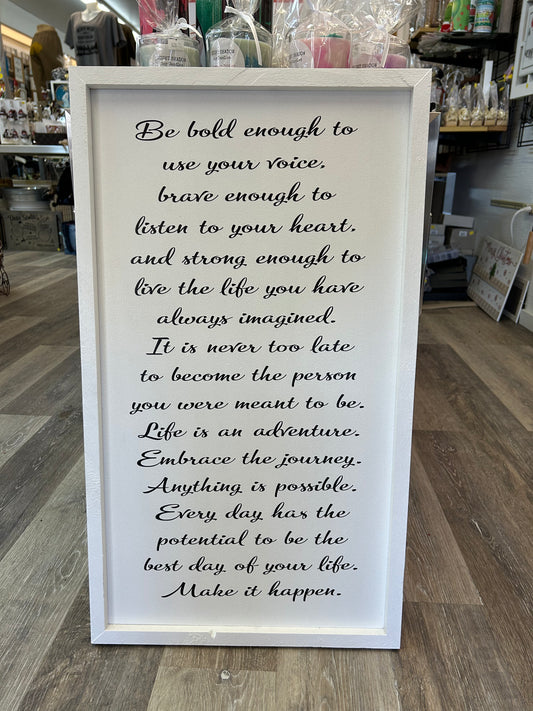 Be bold enough to
use your voice.
brave enough to
listen to your heart.
and strong enough to
live the life you have
always imagined.
It is never too late
to become the person
you were meant to be.
Life is an adventure.
Embrace the journey.
Anything is possible.
Every day has the
potential to be the
best day of your life.
Make it happen.